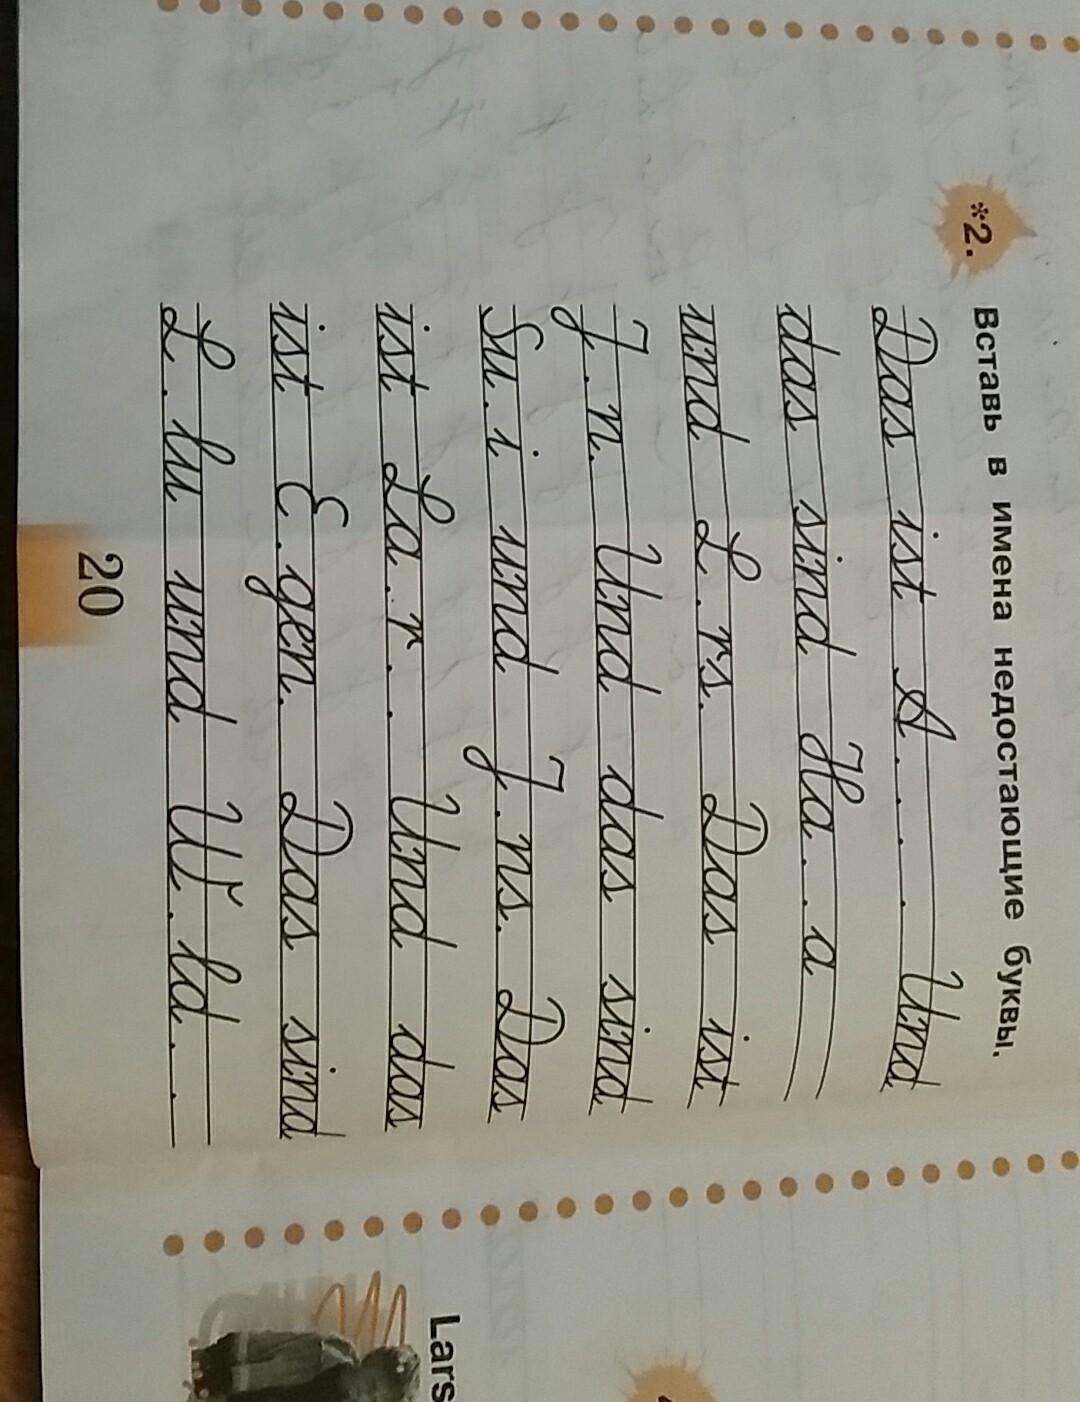 *2. Вставь в имена недостающие буквы.
Das ist A. . . . Und
das sind Ha. .a
und L.rs. Das ist
J.n. Und das sind
Su.i und J.ns. Das
ist La.r. . Und das
ist E.gen. Das sind
L.lu und W.ld. .
20
Lars